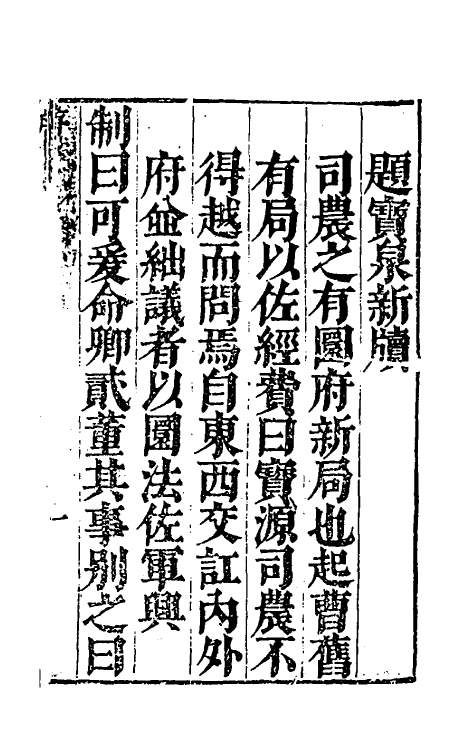 題寶泉新牘
司農之有圜府新局也起曹舊
有局以佐經費曰寶源司農不
得越而問焉自東西交訌內外
府並絀議者以圜法佐軍興
制曰可爰命卿貳董其事別之曰
一